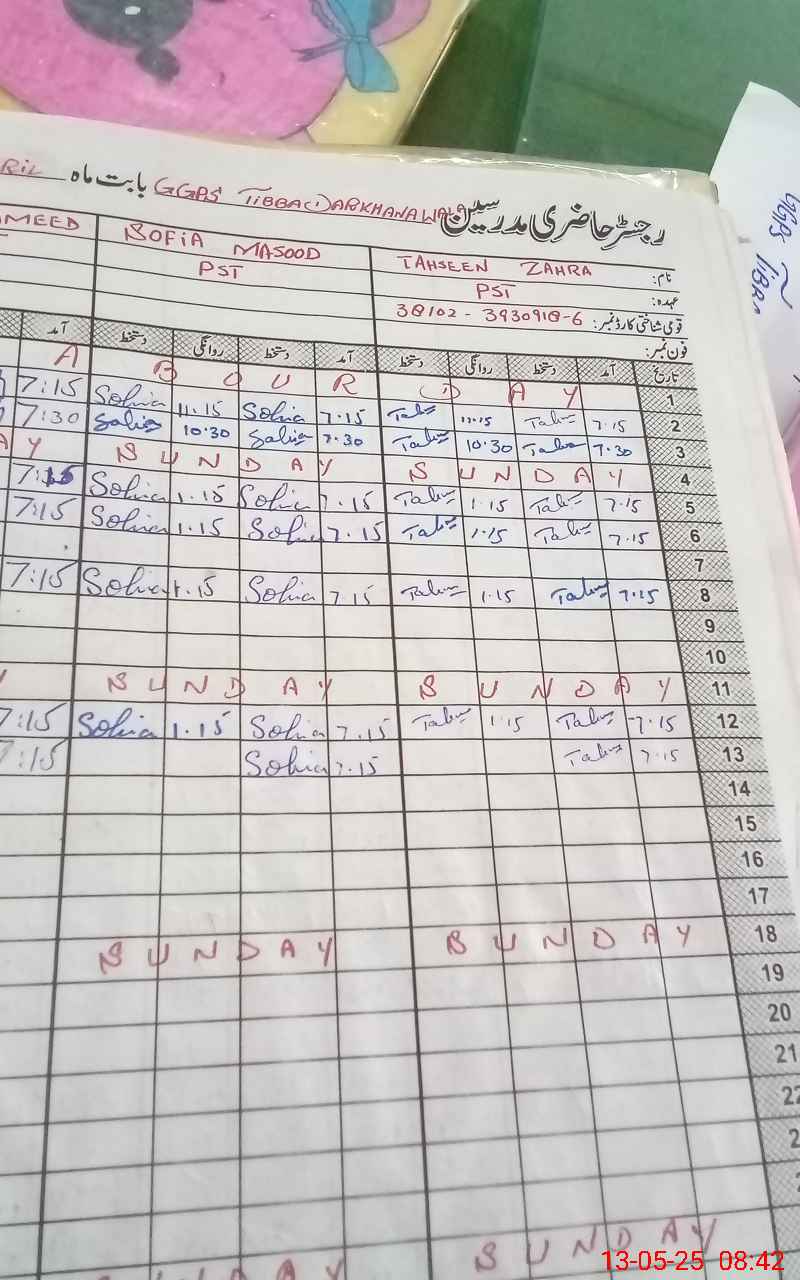 رجسٹر حاضری مدرسین GGPS TIBBA DARKHANAWALA بابت ماہ RIL
نام: TAHSEEN ZAHRA SOFIA MASOOD MEED
عہدہ: PST PST
قومی شناختی کارڈ نمبر: 38102-3930918-6
فون نمبر:
تاریخ آمد دستخط روانگی دستخط آمد دستخط روانگی دستخط آمد
1 D A Y B O U R A
2 7.15 11.15 7.15 Sofia 11.15 Sofia 7:15
3 7.30 10.30 7.30 Sofia 10.30 Sofia 7:30
4 S U N D A Y S U N D A Y A Y
5 7.15 1.15 7.15 Sofia 1.15 Sofia
6 7.15 1.15 7.15 Sofia 1.15 Sofia 7:15
7
8 7.15 1.15 7.15 Sofia 1.15 Sofia 7:15
9
10
11 S U N D A Y S U N D A Y Y
12 7.15 1.15 7.15 Sofia 1.15 Sofia 7:15
13 7.15 7.15 Sofia 7:15
14
15
16
17
18 S U N D A Y S U N D A Y
19
20
21
22
S U N D A Y D A Y
GGPS TIBBA
13-05-25 08:42